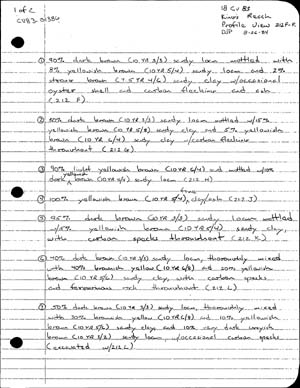 1 of 2
CV83-01384
18 CV 83
Kings Reach
Profile View 212F-K
DJP 8-06-84
① 90% dark brown (10YR 3/3) sandy loam mottled with
8% yellowish brown (10YR 5/4) sandy loam and 2%
strong brown (7.5YR 4/6) sandy clay w/occasional
oyster shell and carbon flecking and ash
(212 F).
② 80% dark brown (10YR 3/3) sandy loam mottled w/15%
yellowish brown (10YR 5/8) sandy clay and 5% yellowish
brown (10YR 5/4) sandy clay w/carbon flecking
throughout (212 G).
③ 90% light yellowish brown (10YR 6/4) and mottled w/10%
dark yellowish brown (10YR 4/4) sandy loam (212 H)
④ 100% yellowish brown (10YR 5/4) clay/ash (212 J)
⑤ 95% dark brown (10YR 3/3) sandy loam mottled
w/5% yellowish brown (10YR 5/4) sandy clay,
with carbon specks throughout (212 K)
⑥ 40% dark brown (10YR 3/3) sandy loam, thoroughly mixed
with 40% brownish yellow (10YR 6/8) and 20% yellowish
brown (10YR 5/6) sandy clay with carbon specks
and ferruginous rock throughout (212 L)
⑦ 50% dark brown (10YR 3/3) sandy loam, thoroughly mixed
with 30% brownish yellow (10YR 6/8) and 10% yellowish
brown (10YR 5/6) sandy clay and 10% very dark grayish
brown (10YR 3/2) sandy loam, w/occasional carbon specks
(excavated w/212L)